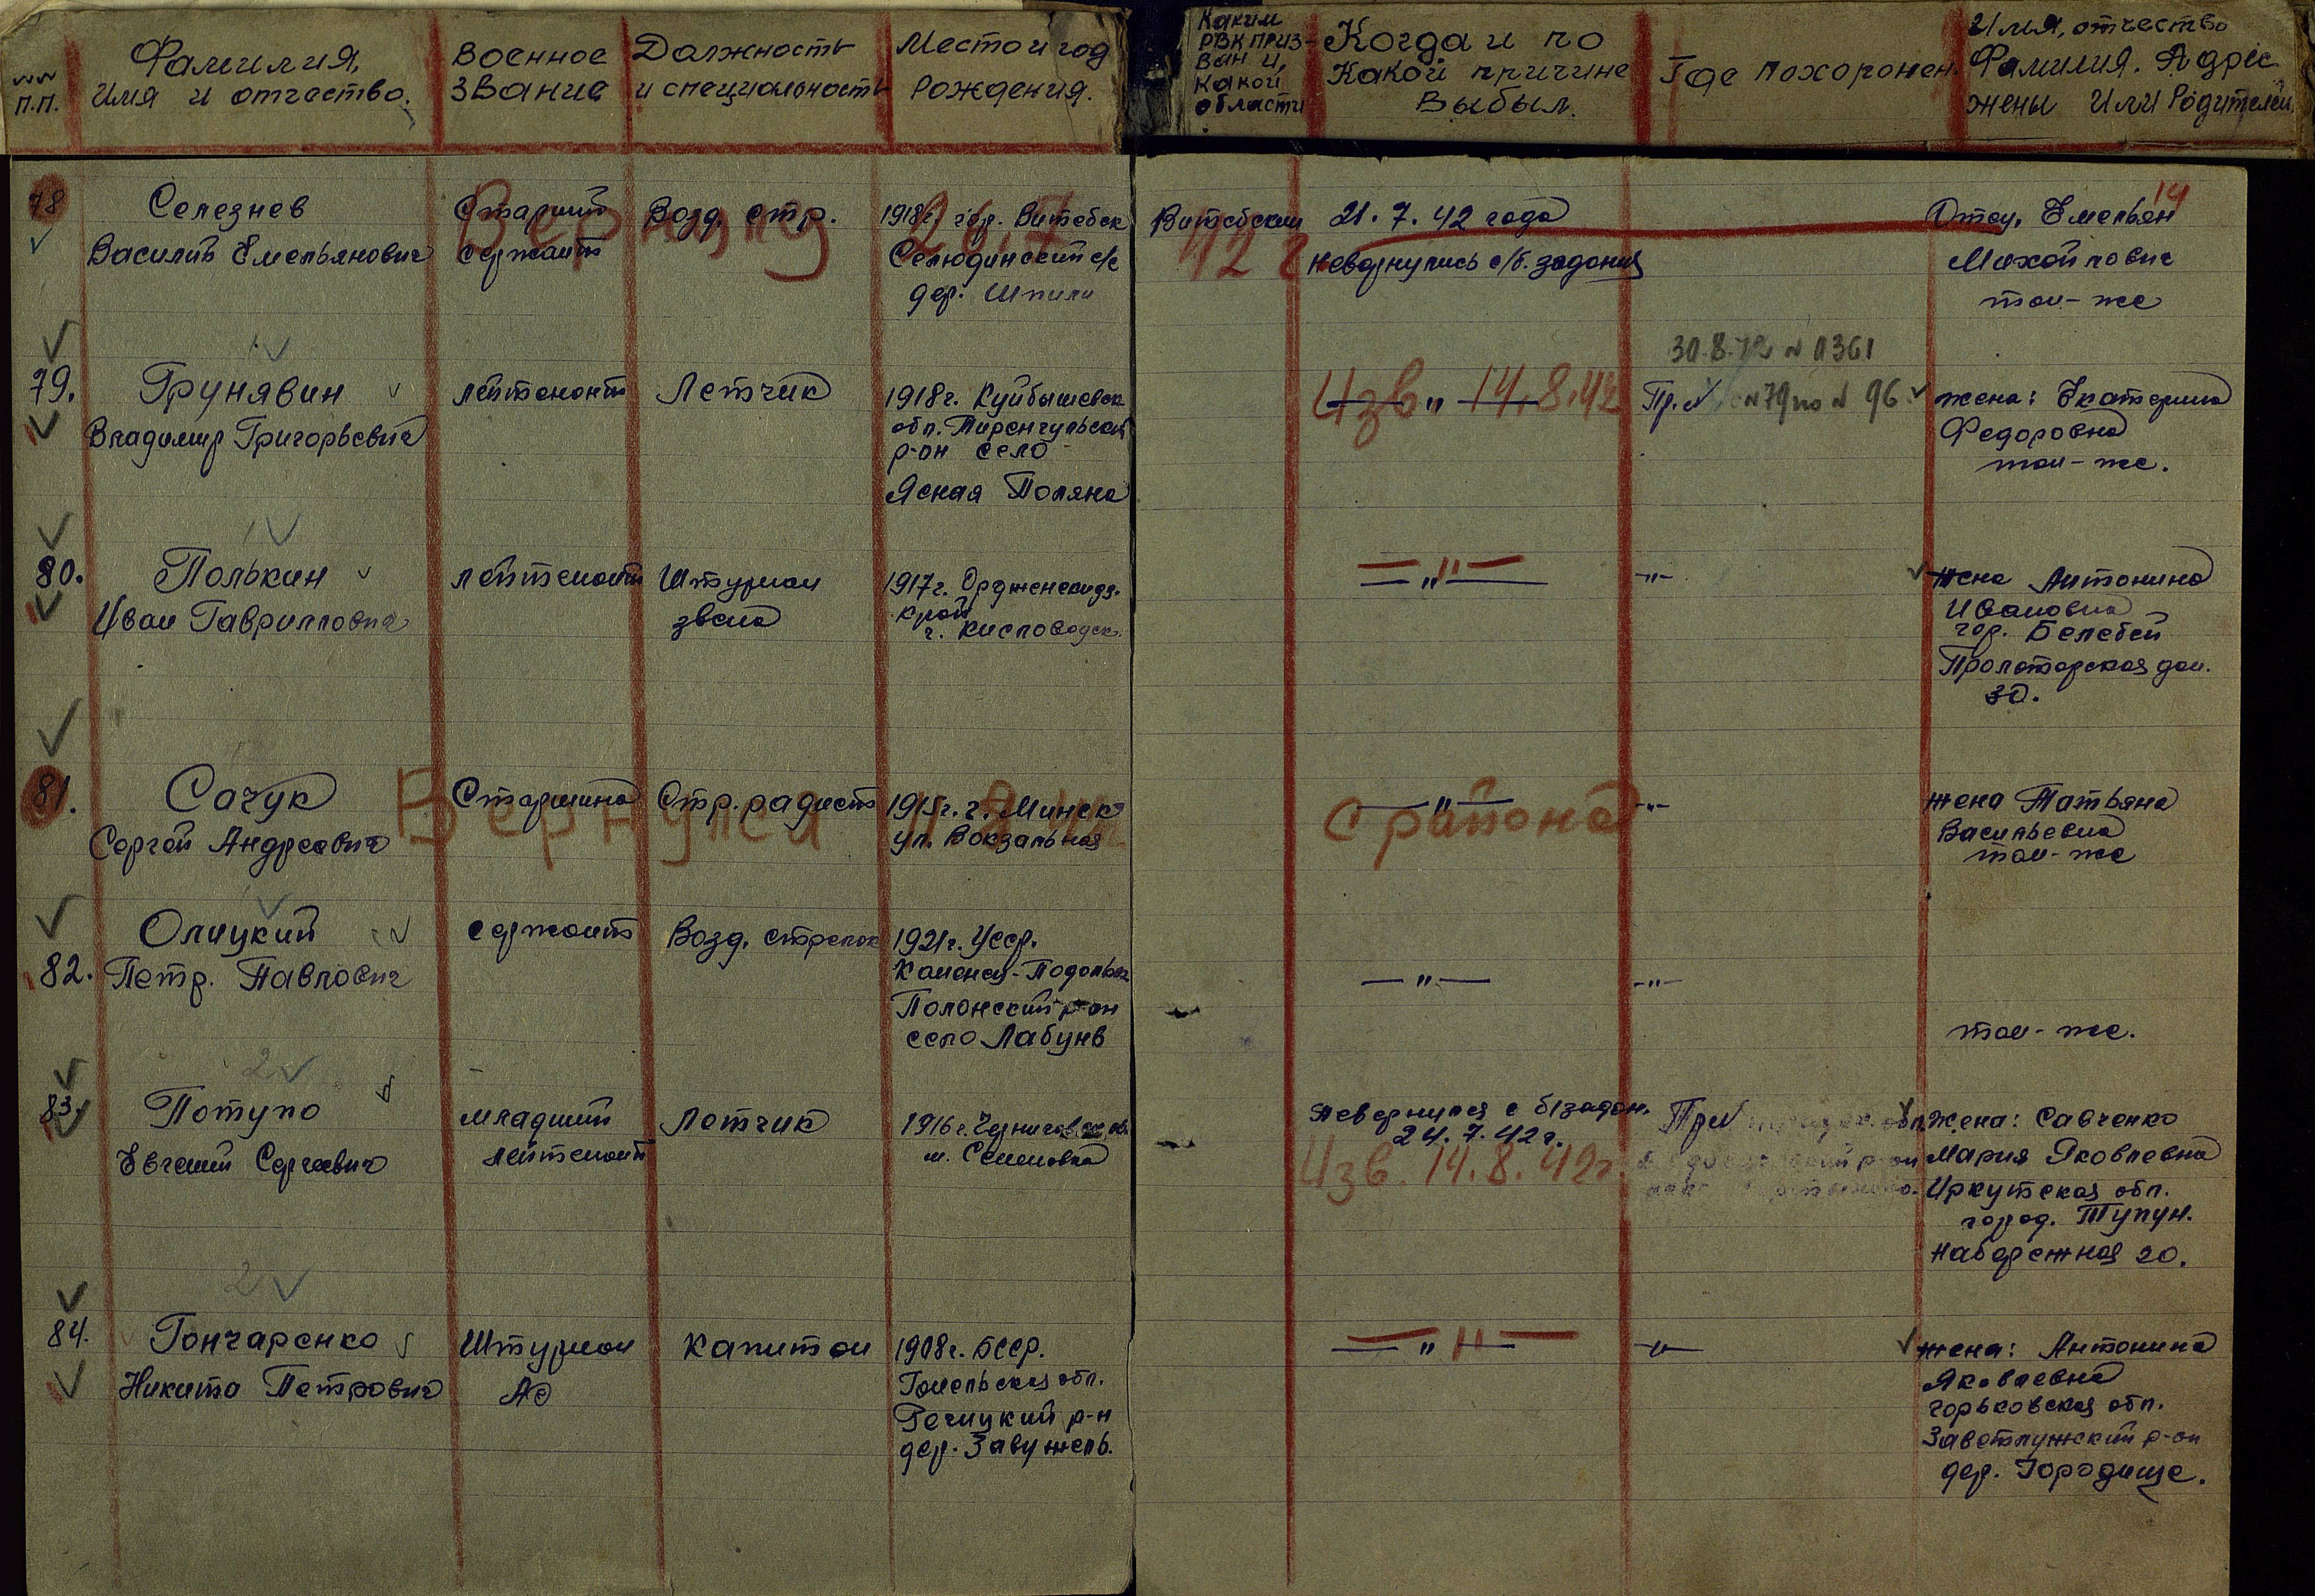 №№ п.п.
Фамилия, Имя и отчество.
Военное звание
Должность и специальность
Место и год рождения.
Каким РВК призван и, какой области
Когда и по какой причине выбыл.
Где похоронен.
Имя, отчество Фамилия. Адрес жены или родителей
14
78
Селезнев
Василий Емельянович
Старший
сержант
Возд. стр.
1918г. гор. Витебск
с/с
дер. Шпили
Витебским
21.7.42 года
невернулись с/б. задания
Отец, Емельян
Михайлович
там-же
42 г.
79.
Грунявин
Владимир Григорьевич
лейтенант
Летчик
1918г. Куйбышевск
обл.
р-он село
Ясная Поляна
— " —
Изв. 14.8.42
30.8.72 № 0361
№ 96
жена: Екатерина
Федоровна
там-же.
80.
Полькин
Иван Гаврилович
лейтенант
Штурман
звена
1917г. Орджоникидз.
край
г. Кисловодск.
— " —
— " —
-"-
жена Антонина
Ивановна
гор. Белебей
Пролетарская дом.
30.
81.
Сачук
Сергей Андреевич
Старшина
Стр. радист
1915г. г. Минск
ул. Вокзальная
— " —
-"-
жена Татьяна
Васильевна
там-же
Вернулся
с района
82.
Олицкий
Петр. Павлович
сержант
Возд. стрелок
1921г. Усср.
Каменец-Подольск
Полонский р-он
село Лабунь
— " —
-"-
там-же.
83.
Потупо
Евгений Сергеевич
младший
лейтенант
Летчик
1916г. Черниговская об.
м. Семеновка
Невернулся с б/задан.
24.7.42г.
Изв. 14.8.42г.
жена: Савченко
Мария Яковлевна
Иркутская обл.
город. Тулун.
Набережная 20.
84.
Гончаренко
Никита Петрович
Штурман
АЭ
Капитан
1908г. БССР.
Гомельская обл.
Речицкий р-н
дер. Завужель.
— " —
— " —
-"-
жена: Антонина
Яковлевна
Горьковская обл.
Заветлужский р-он
дер. Городище.